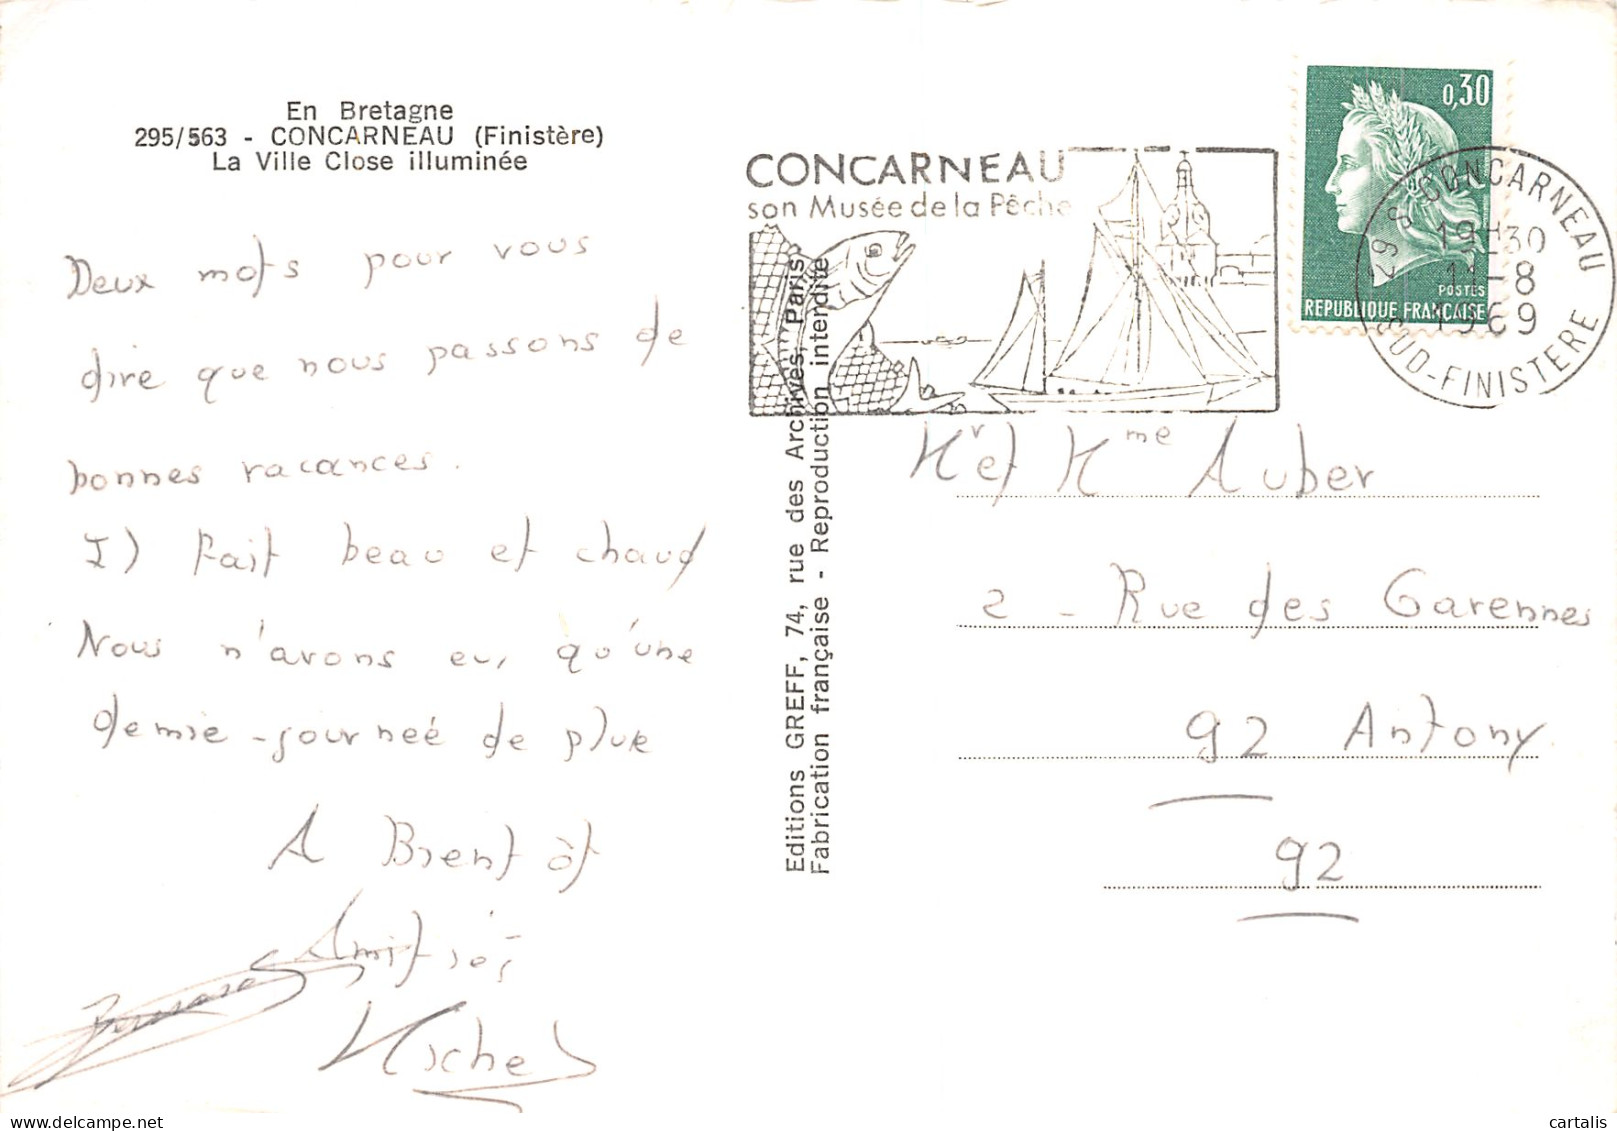 En Bretagne
295/563 - CONCARNEAU (Finistère)
La Ville Close illuminée
Deux mots pour vous
dire que nous passons de
bonnes vacances.
I) Fait beau et chaud
Nous n'avons eu, qu'une
demie-journeé de pluie
A Bientôt
Amitiés
Michel
Editions GREFF, 74, rue des Archives, Paris
Fabrication française - Reproduction interdite
CONCARNEAU
son Musée de la Pêche
0,30
POSTES
REPUBLIQUE FRANÇAISE
29 S CONCARNEAU S
19H30
11-8
1969
SUD-FINISTERE
Mr et Mme Auber
2 - Rue des Garennes
92 Antony
92
delcampe.net
cartalis